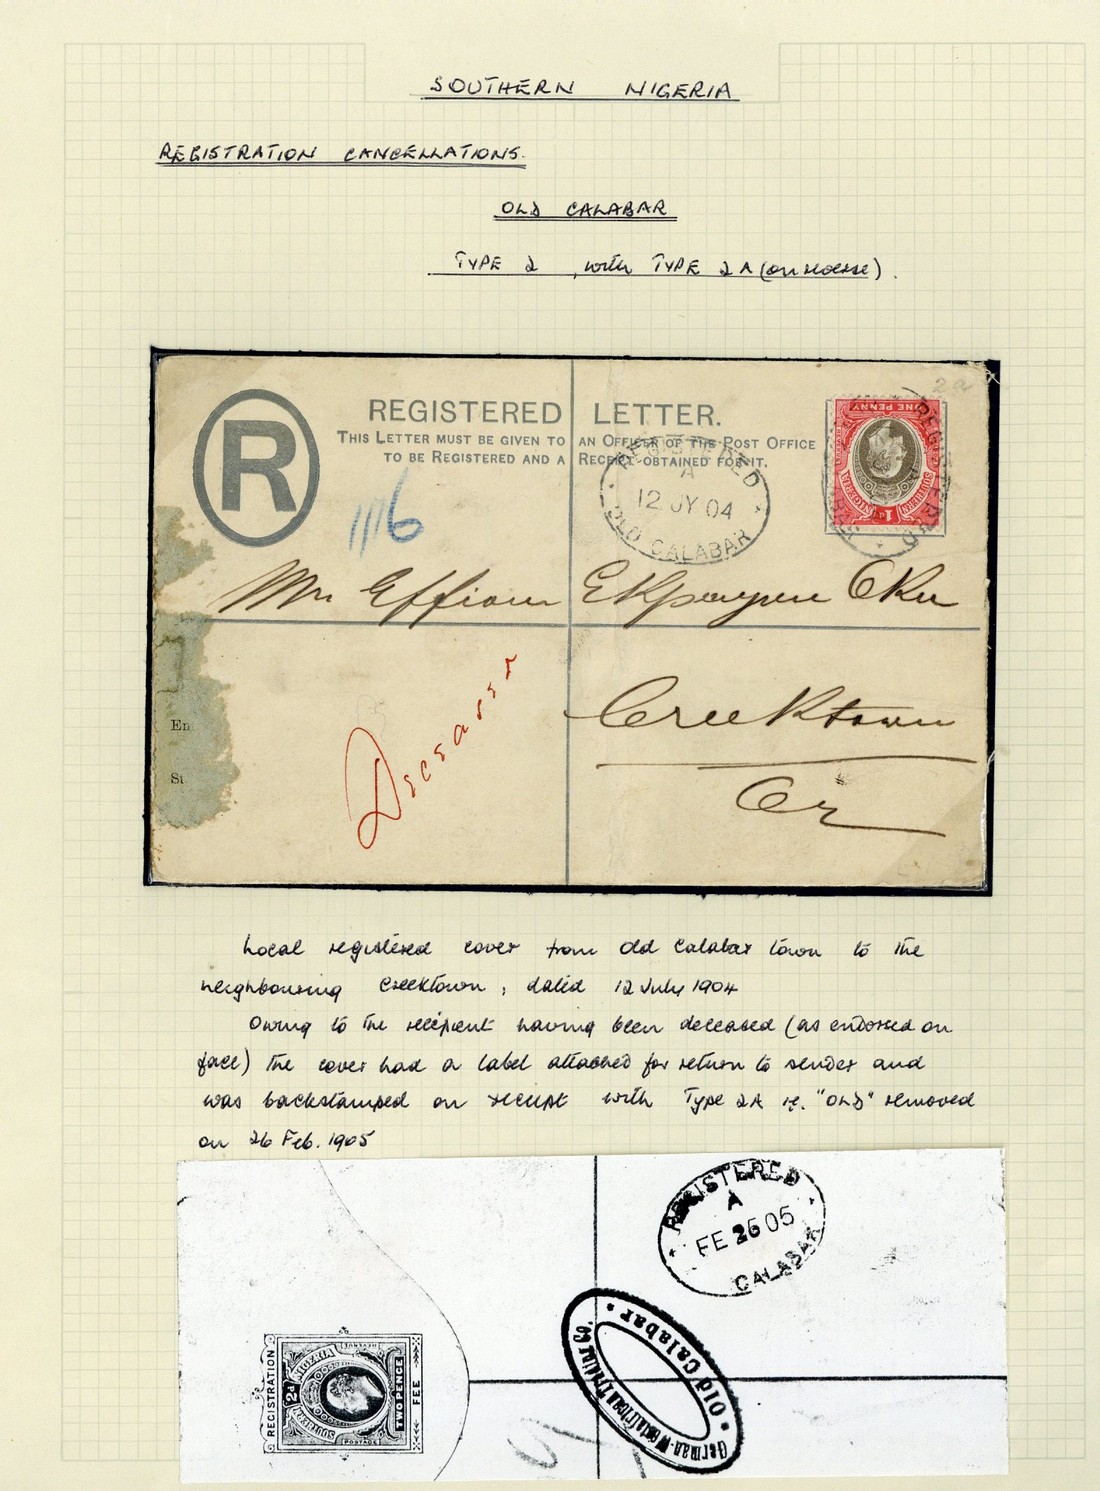 SOUTHERN NIGERIA
REGISTRATION CANCELLATIONS.
OLD CALABAR
TYPE 2, with TYPE 2A (on reverse).
2a
R
REGISTERED LETTER.
THIS LETTER MUST BE GIVEN TO AN OFFICER OF THE POST OFFICE
TO BE REGISTERED AND A RECEIPT OBTAINED FOR IT.
REGISTERED
A
12 JY 04
OLD CALABAR
ONE PENNY
SOUTHERN NIGERIA
1d
REGISTERED
1116
Mr Effiom Ekpenyon Oku
En
St
Deceased
Creektown
Cr
Local registered cover from Old Calabar town to the
neighbouring Creektown, dated 12 July 1904
Owing to the recipient having been deceased (as endorsed on
face) the cover had a label attached for return to sender and
was backstamped on receipt with Type 2A ie. "OLD" removed
on 26 Feb. 1905
REGISTERED
A
FE 26 05
CALABAR
German-West African Trading Co.
Old Calabar
REGISTRATION
SOUTHERN NIGERIA
2d
POSTAGE
REVENUE
TWO PENCE
FEE